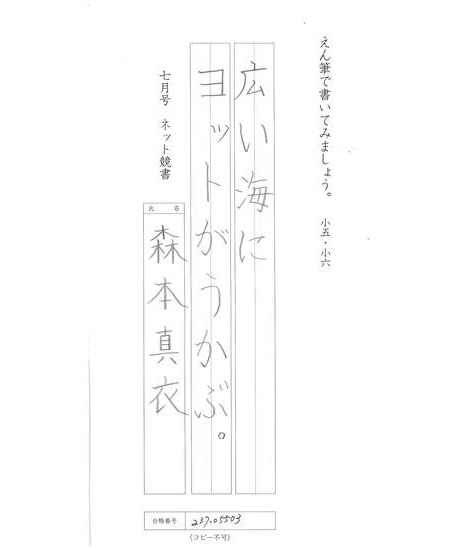 えん筆で書いてみましょう。 小五・小六
広い海に
ヨットがうかぶ。
七月号 ネット競書
氏名
森本真衣
台帳番号 237-05503
(コピー不可)